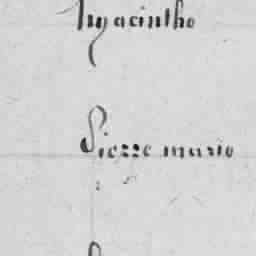 hyacintho
Pierre mario